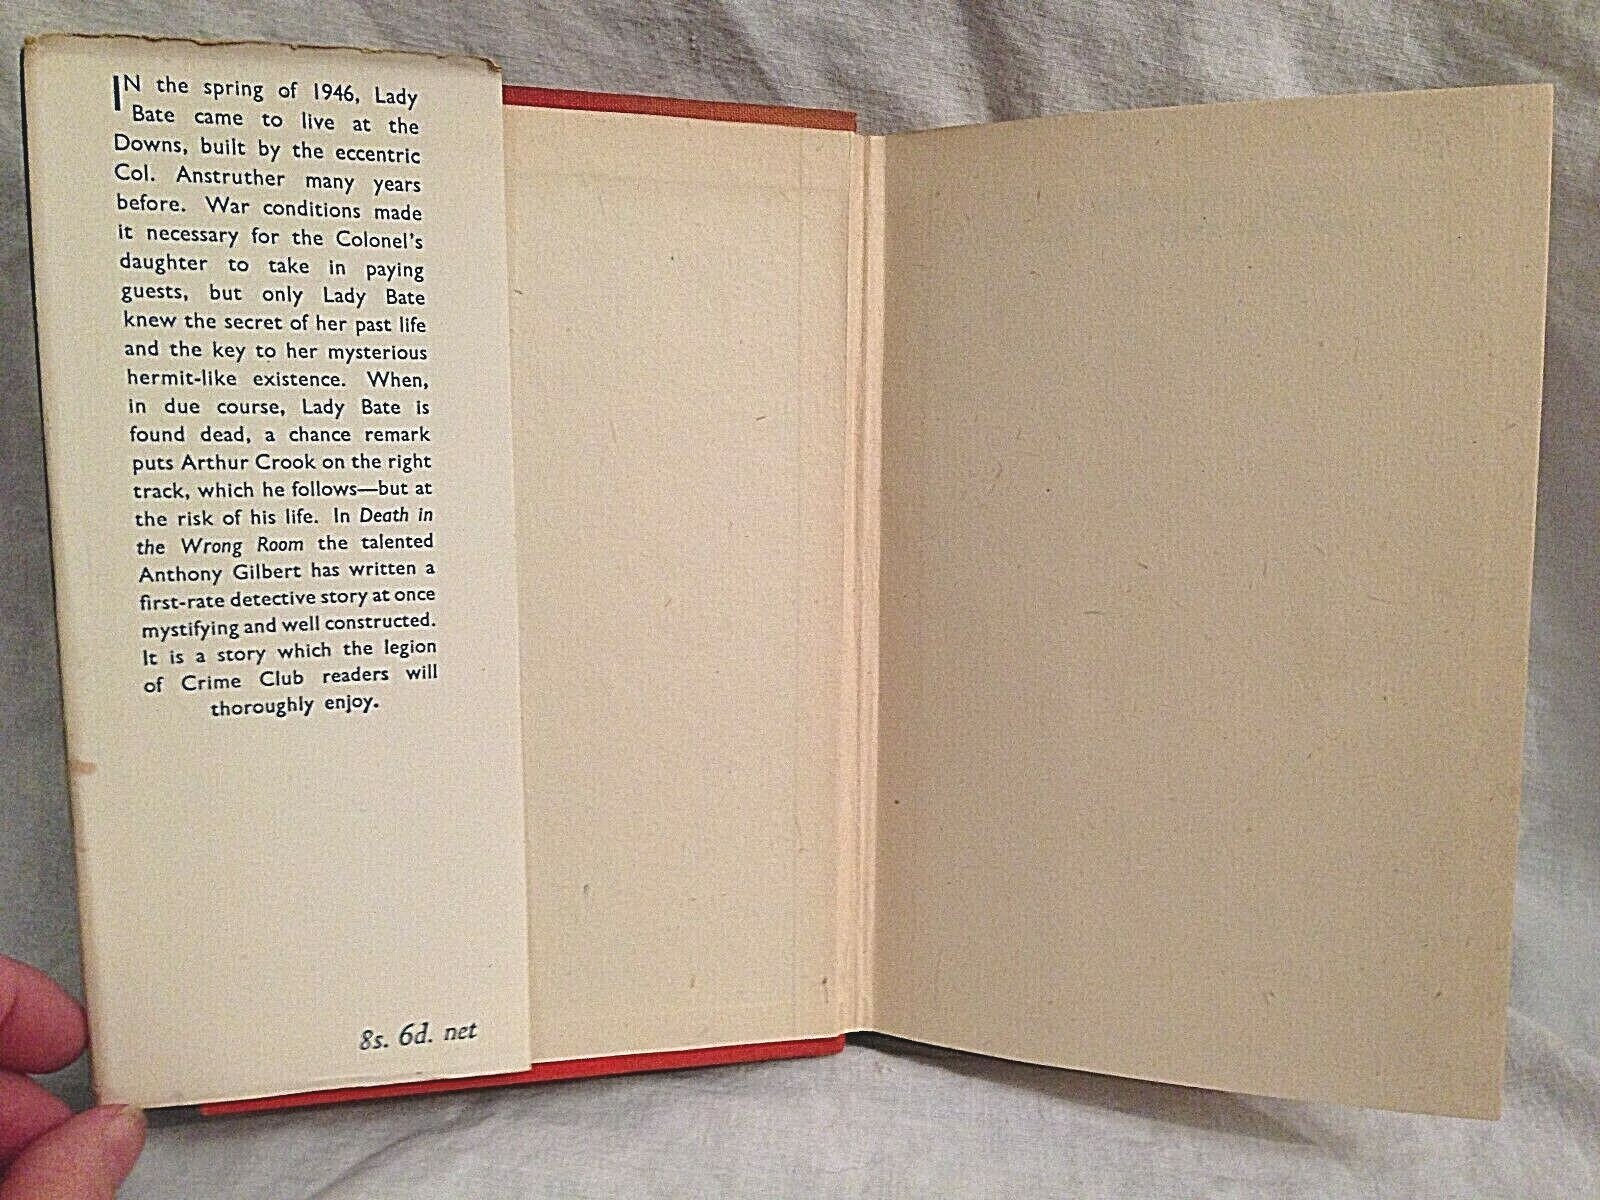 IN the spring of 1946, Lady
Bate came to live at the
Downs, built by the eccentric
Col. Anstruther many years
before. War conditions made
it necessary for the Colonel's
daughter to take in paying
guests, but only Lady Bate
knew the secret of her past life
and the key to her mysterious
hermit-like existence. When,
in due course, Lady Bate is
found dead, a chance remark
puts Arthur Crook on the right
track, which he follows—but at
the risk of his life. In Death in
the Wrong Room the talented
Anthony Gilbert has written a
first-rate detective story at once
mystifying and well constructed.
It is a story which the legion
of Crime Club readers will
thoroughly enjoy.
8s. 6d. net